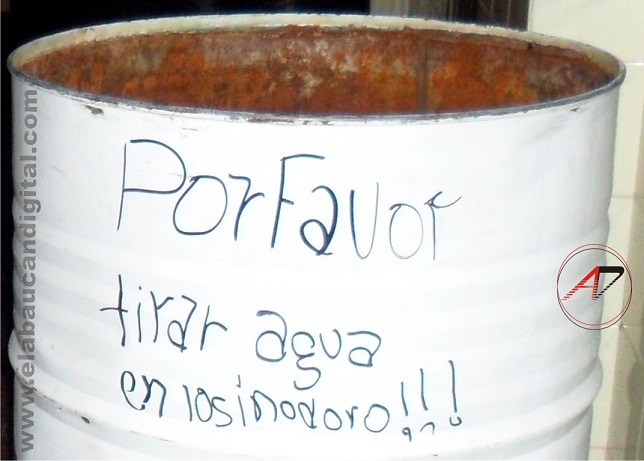 PorFavor
tirar agua
en losinodoro!!!
www.elabaucandigital.com
AD